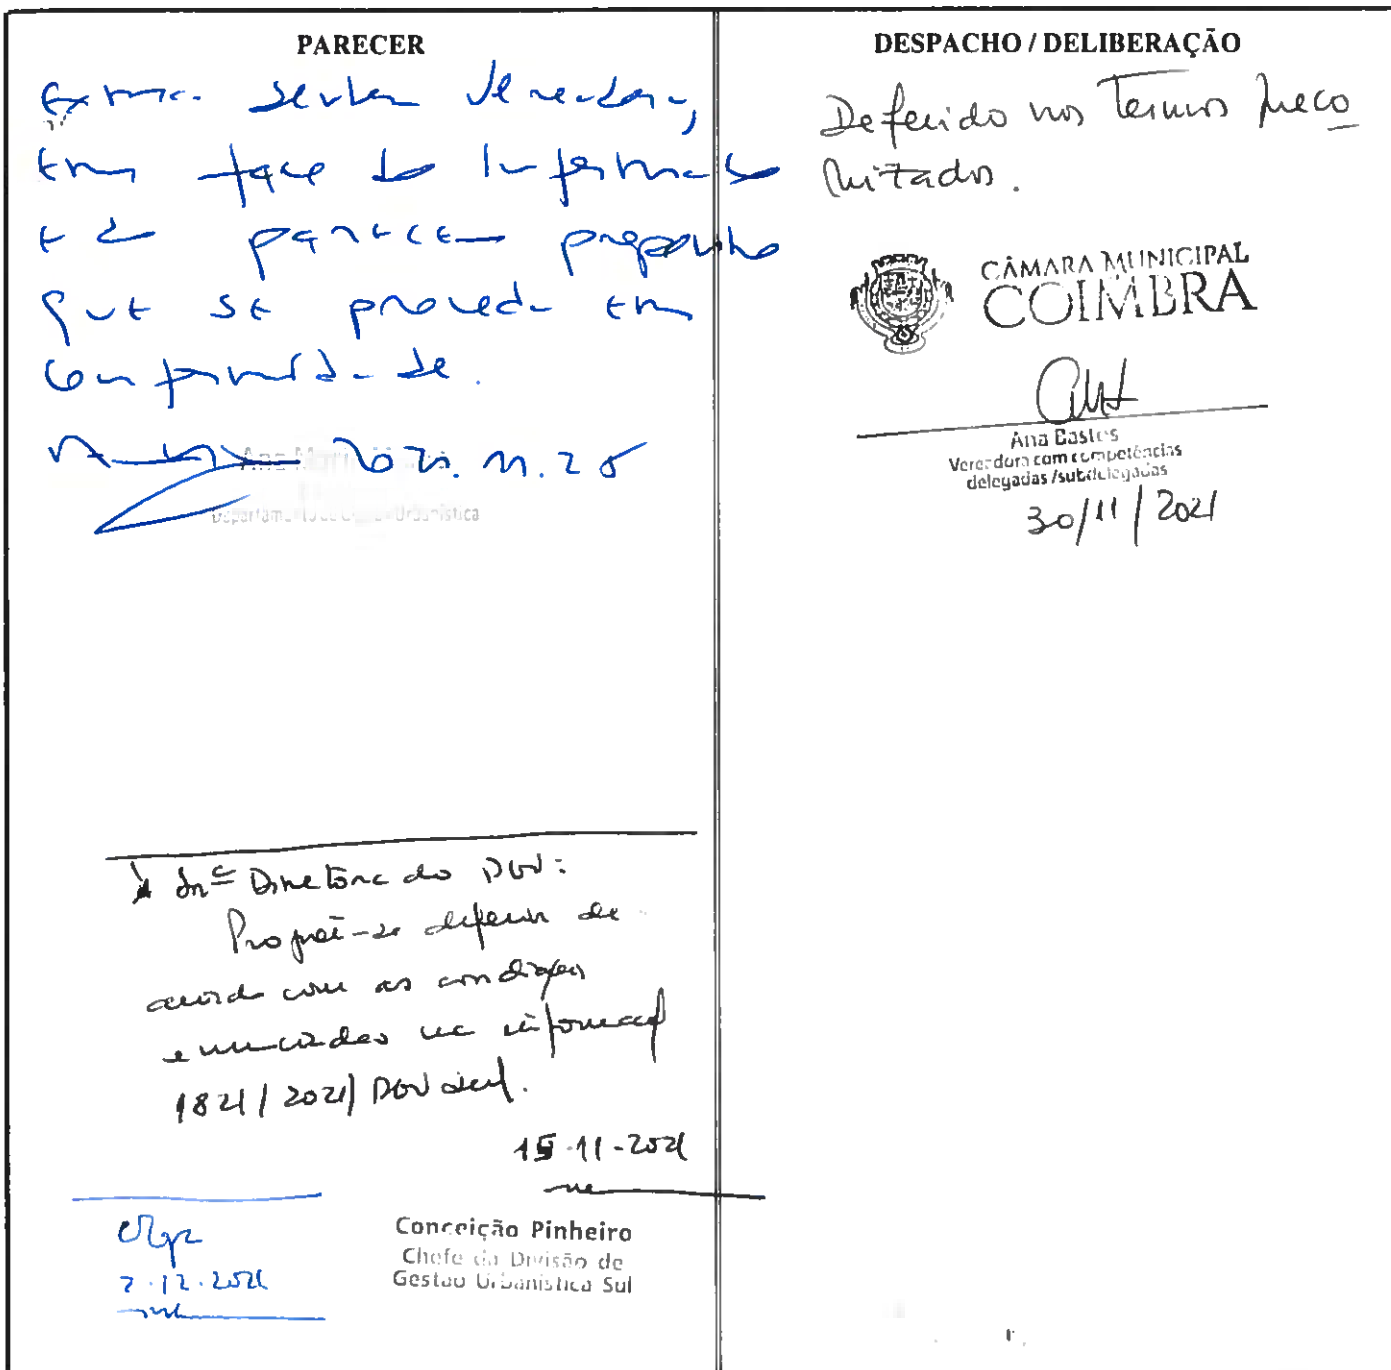 PARECER
Exma. Senhora Vereadora,
Em face do informado
e do parecer proponho
que se proceda em
conformidade.
2021.11.25
Departamento de Gestão Urbanística
À Srª Diretora do DGU:
Propõe-se deferir de
acordo com as condições
enunciadas na informação
1821/2021/DGU Sul.
15-11-2021
Conceição Pinheiro
Chefe da Divisão de
Gestão Urbanística Sul
2.12.2021
DESPACHO / DELIBERAÇÃO
Deferido nos Termos preco
nizados.
CÂMARA MUNICIPAL
COIMBRA
Ana Bastos
Vereadora com competências
delegadas/subdelegadas
30/11/2021